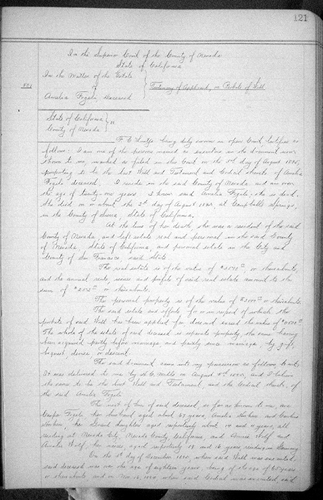 121
In the Superior Court of the County of Nevada
State of California
In the Matter of the Estate
of
Testimony of Applicant, on Probate of Will
Amelia Deceased
State of California
County of Nevada } ss
being duly sworn in open Court testifies as
follows: I am one of the persons named as executors in the document now
shown to me, marked as filed in this Court on the day of August 1890,
purporting to be the last Will and Testament and Codicil thereto of Amelia
deceased. I reside in the said County of Nevada and am over
the age of twenty one years. I knew said Amelia she is dead.
She died on or about the 2nd day of August 1890, at Campbells Springs
in the County of Sierra, State of California,
At the time of her death she was a resident of the said
County of Nevada, and left estate real and personal in the said County
of Nevada, State of California, and personal estate in the City and
County of San Francisco said State.
The real estate is of the value of or thereabouts,
and the annual rents issues and profits of said real estate amount to the
sum of or thereabouts.
The personal property is of the value of or thereabouts
The said estate and effects for or in respect of which the
probate of said Will has been applied for do not exceed the value of
The whole of the estate of said deceased is separate property, the same having
been acquired partly before marriage, and partly since marriage, by gift
bequest devise or descent.
The said document came into my possession as follows, to wit,
It was delivered to me by on August 1890, and I believe
the same to be the last Will and Testament, and the Codicil thereto, of
the said Amelia
The next of kin of said deceased, as far as known to me, are
her husband aged about years, Amelia and
her Grand daughters aged respectively about and years, all
residing at Nevada City, Nevada County, California and
aged respectively and years residing in Germany
On the day of December 1880, when said Will was executed,
said deceased was over the age of eighteen years, being of the age of years
or thereabouts, and on 1890 when said Codicil was executed said